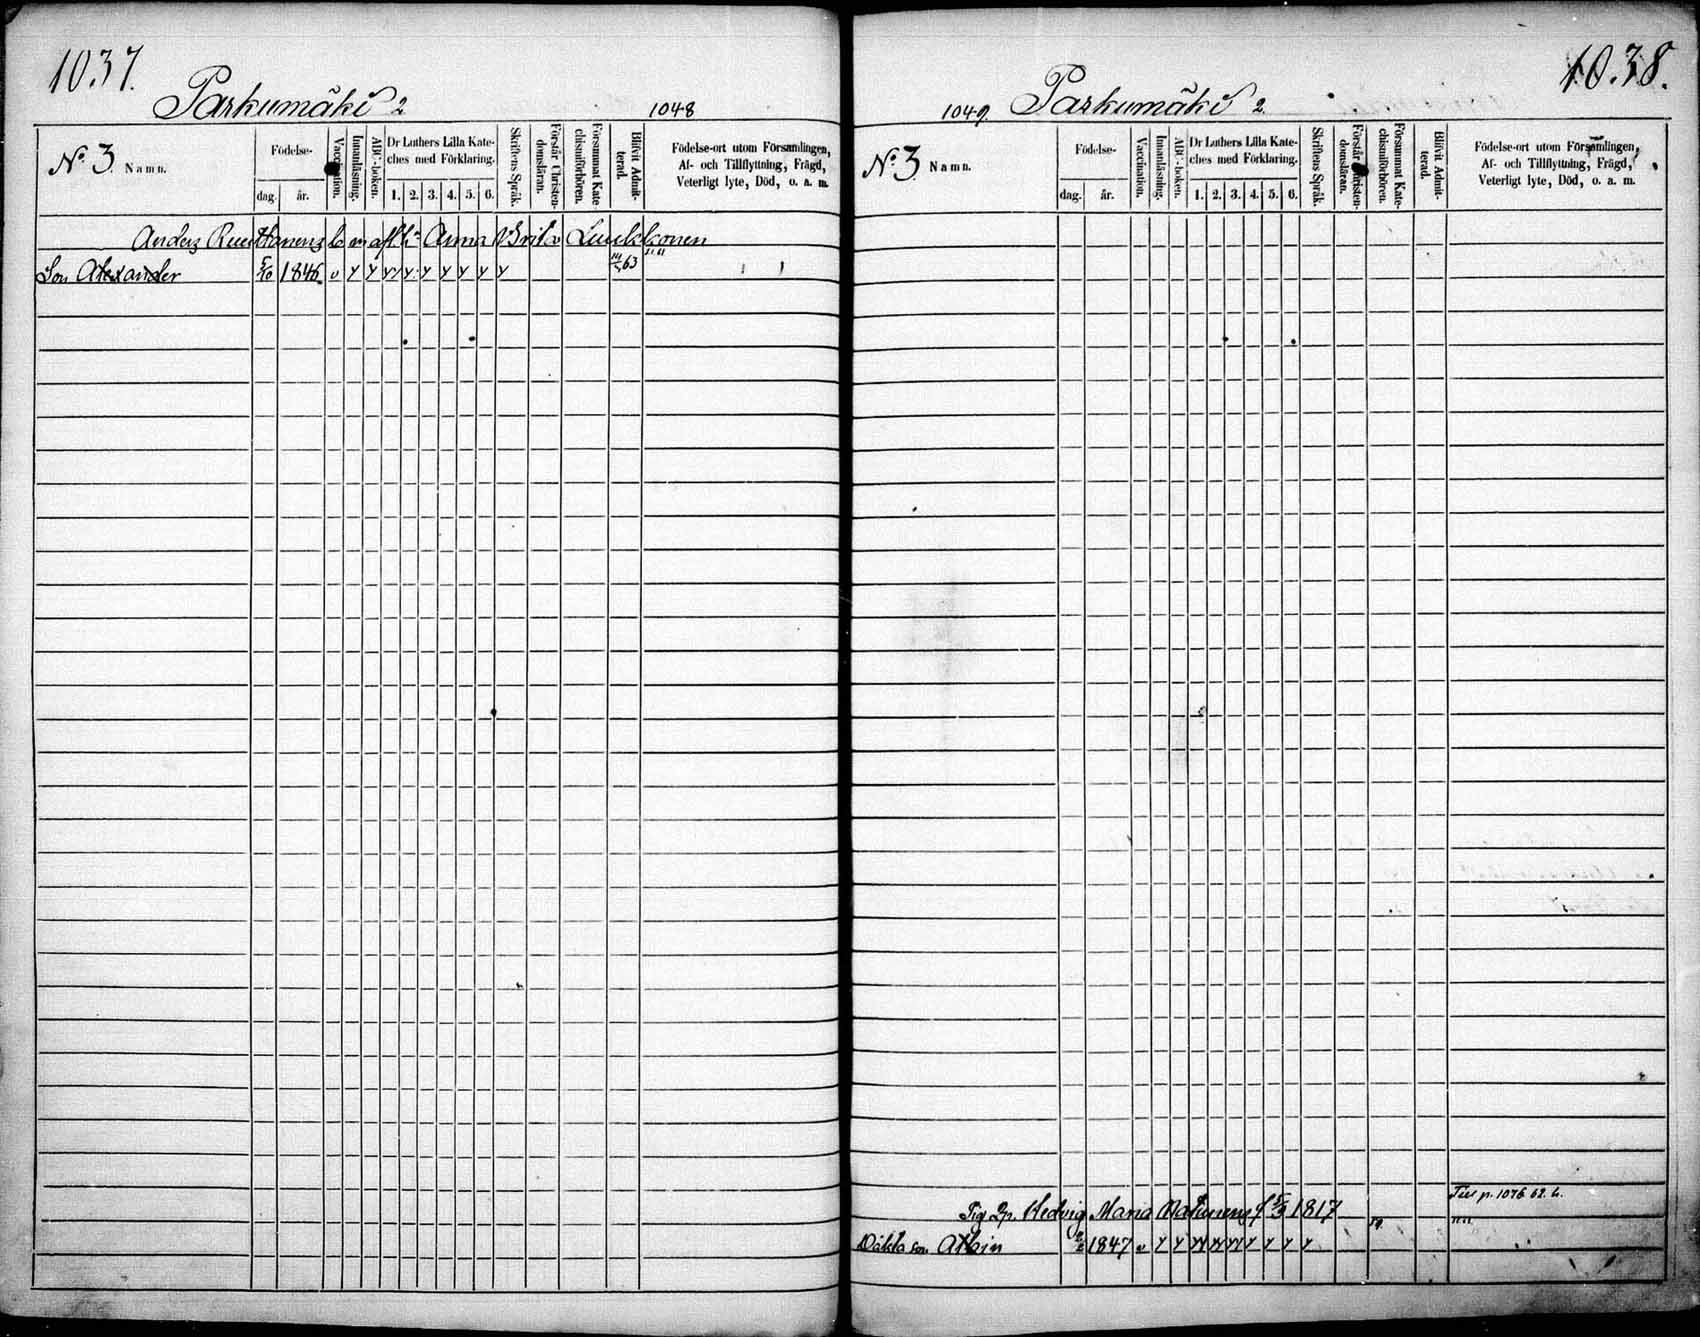 1037.
Parkumäki 2
1048
No. 3. Namn.
Födelse-
dag.
år.
Vaccination.
Innanläsning.
ABC-boken.
Dr Luthers Lilla Kate-
ches med Förklaring.
1. 2. 3. 4. 5. 6.
Skriftens Språk.
Förstår Christen-
domsläran.
Försummat Kate-
chismiförhören.
Blifvit Admit-
terad.
Födelse-ort utom Församlingen,
Af- och Tillflyttning, Frägd,
Veterligt lyte, Död, o. a. m.
Anders Anna Brita Luukkonen
Son Alexander 5/10 1846 v y y yy y y y y y y 63
1038.
1049. Parkumäki 2
No. 3 Namn.
Födelse-
dag.
år.
Vaccination.
Innanläsning.
ABC-boken.
Dr Luthers Lilla Kate-
ches med Förklaring.
1. 2. 3. 4. 5. 6.
Skriftens Språk.
Förstår Christen-
domsläran.
Försummat Kate-
chismiförhören.
Blifvit Admit-
terad.
Födelse-ort utom Församlingen,
Af- och Tillflyttning, Frägd,
Veterligt lyte, Död, o. a. m.
p. 1076
Hedvig Maria 1817
son Albin 1847 v y y yy yy yy y y y y